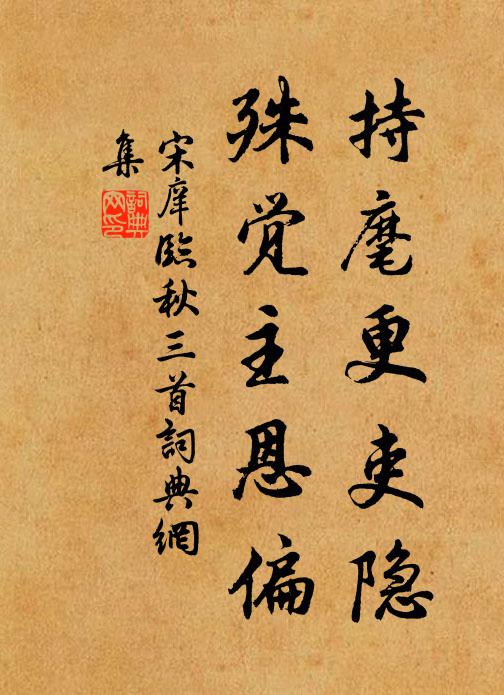 持麾更吏隐
殊觉主恩偏
宋庠臨秋三首詞典網
集
詞典网印